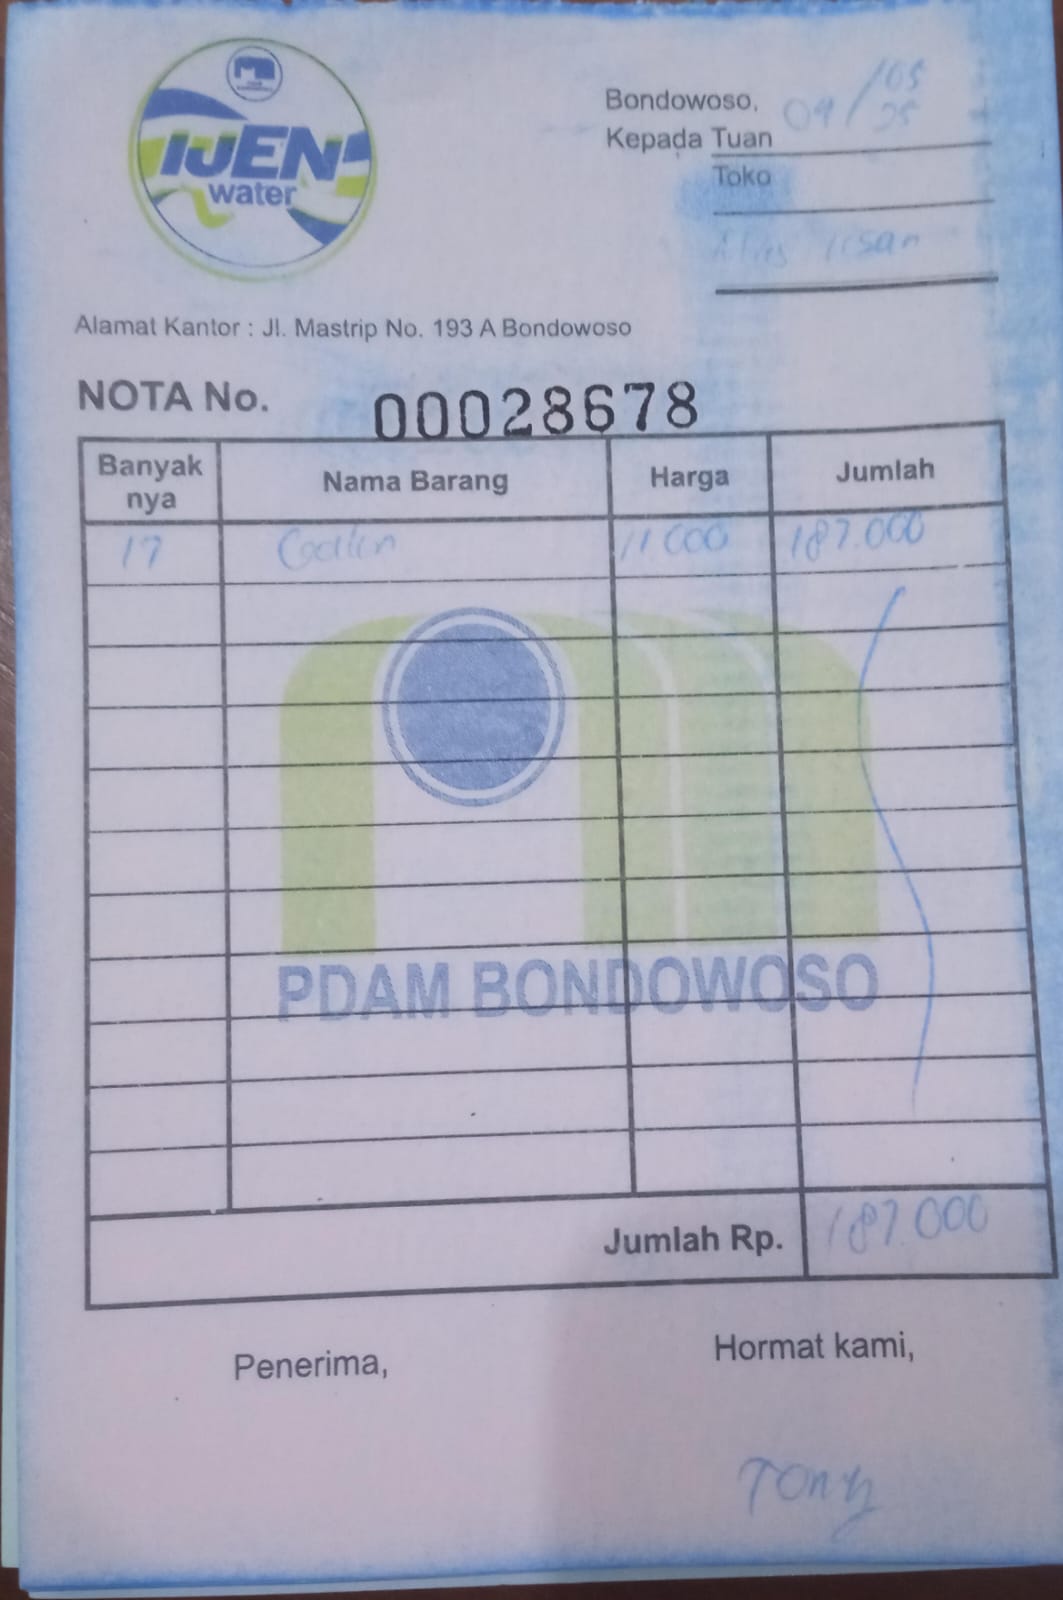 IJEN
water
Bondowoso, 04/05
25
Kepada Tuan
Toko
Ikhsan
Alamat Kantor : Jl. Mastrip No. 193 A Bondowoso
NOTA No. 00028678
Banyak nya Nama Barang Harga Jumlah
17 11.000 187.000
PDAM BONDOWOSO
Jumlah Rp. 187.000
Penerima, Hormat kami,
Tony